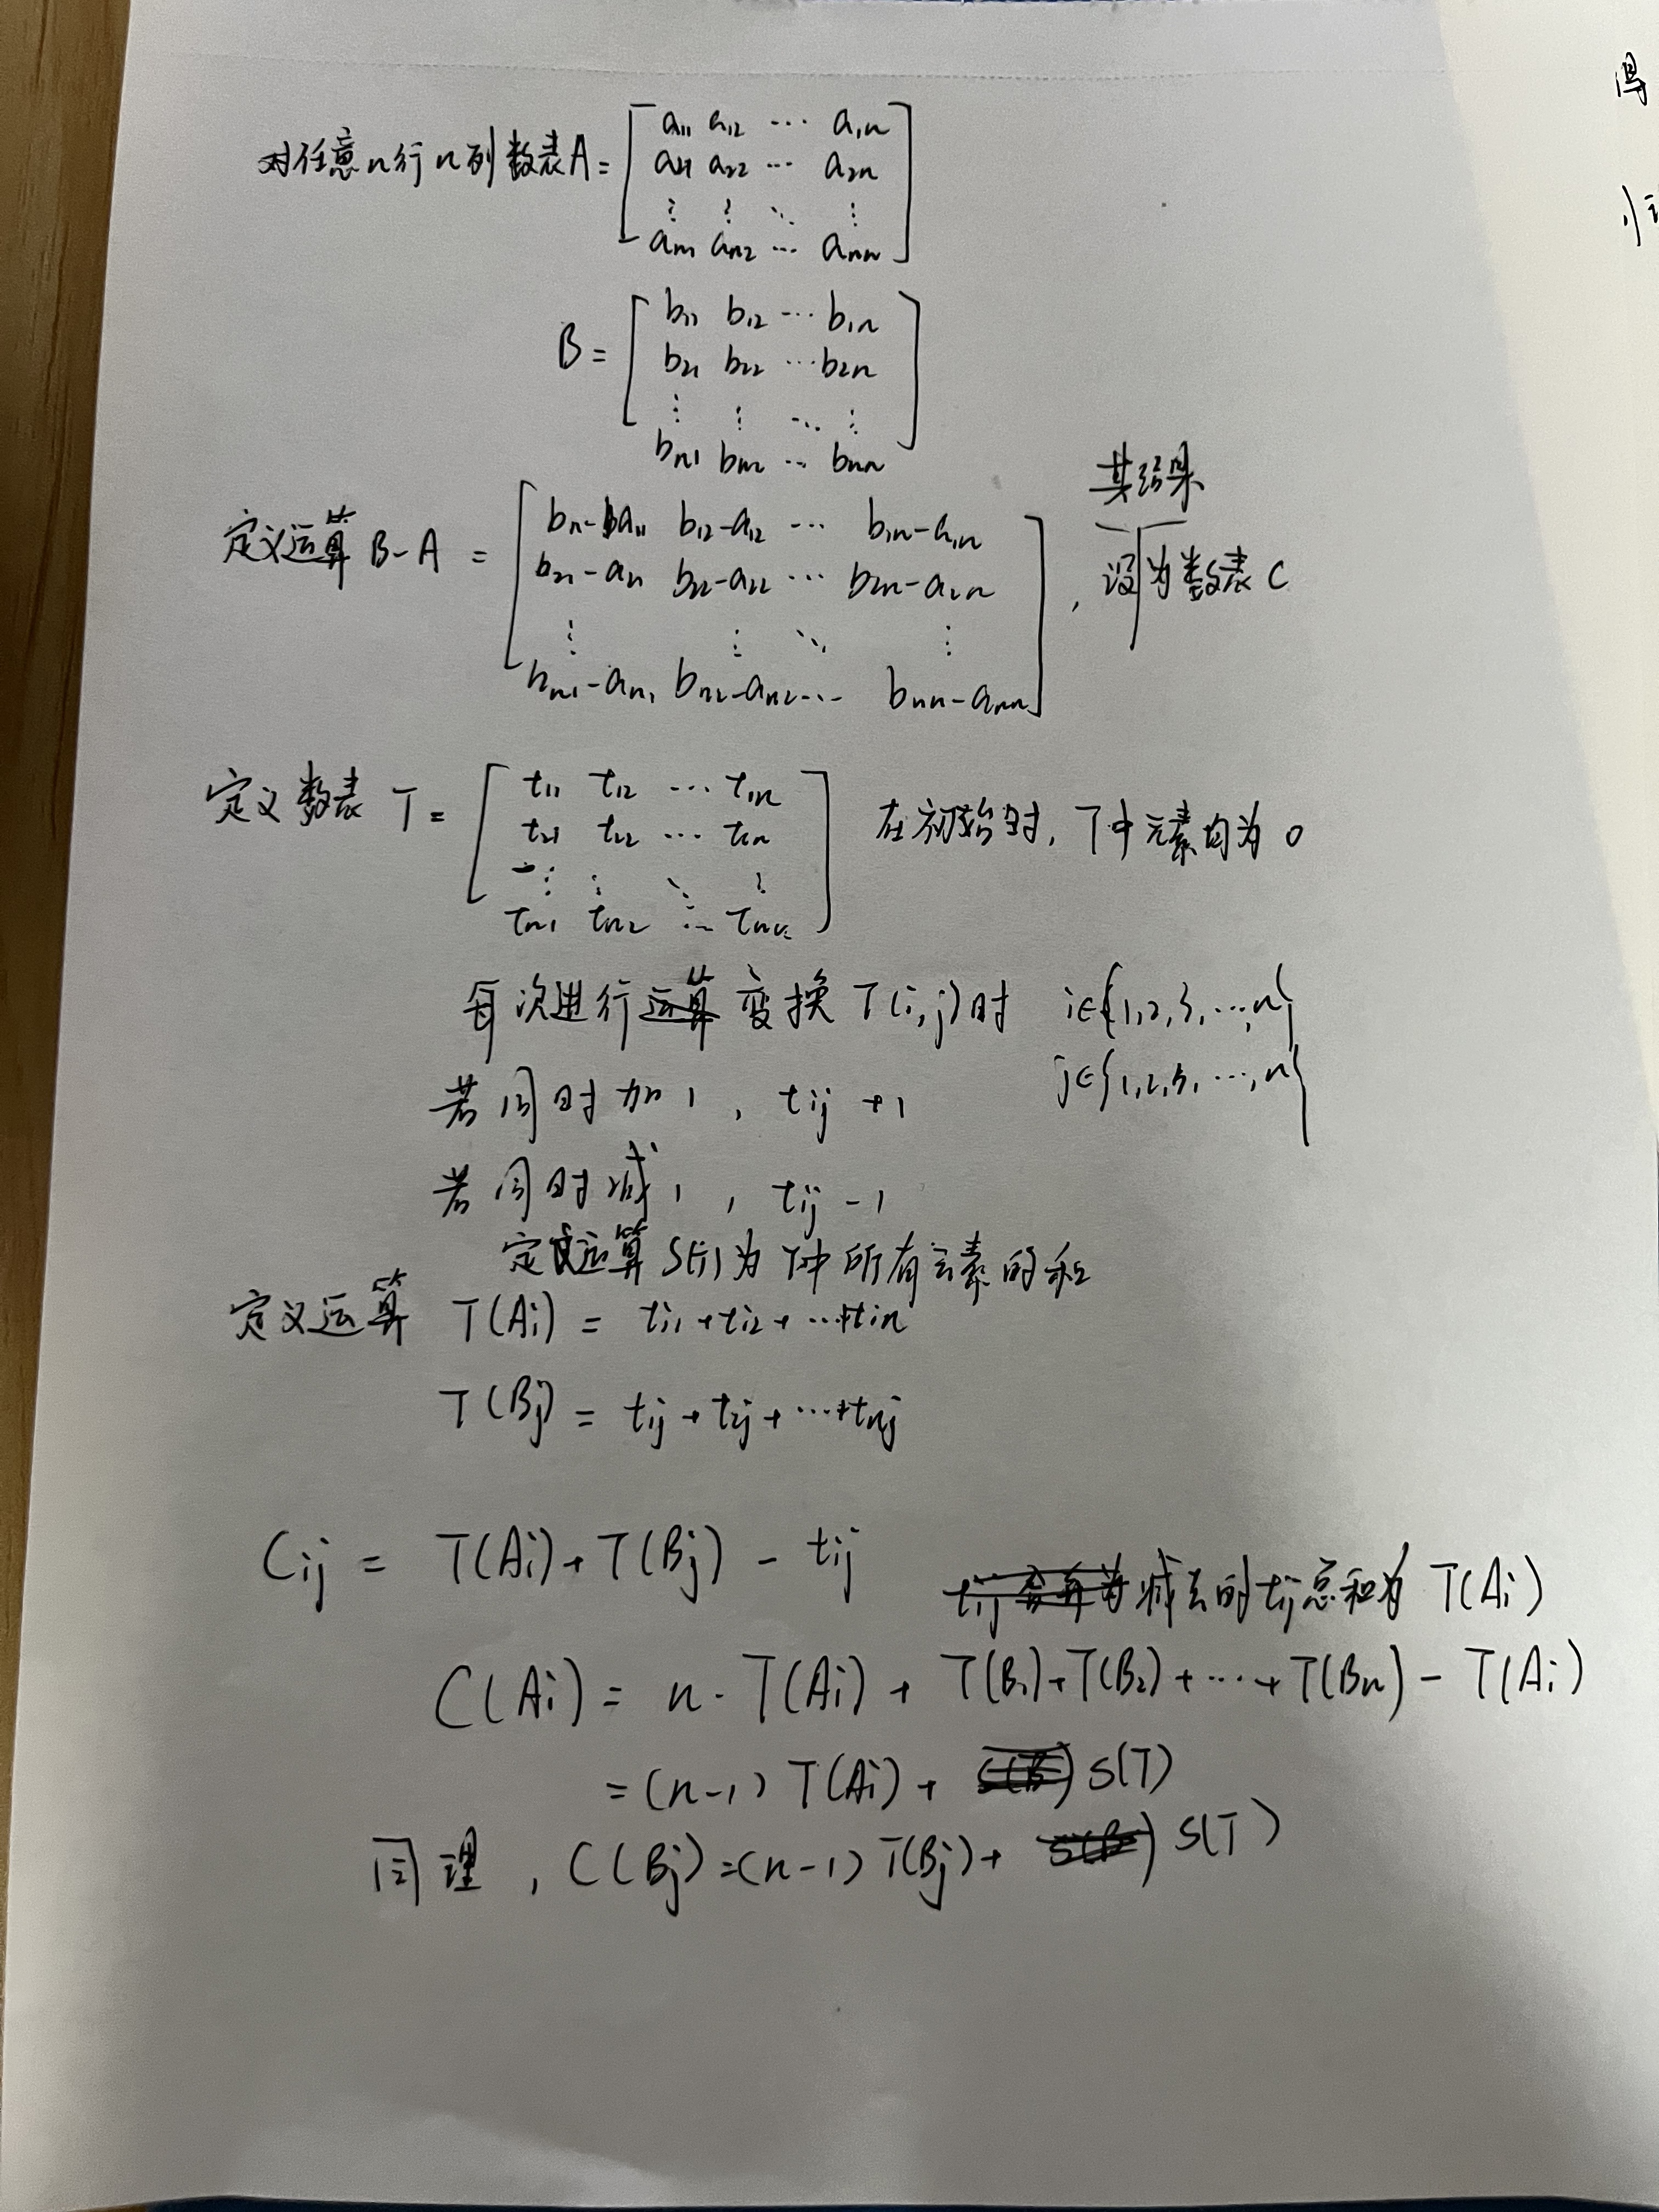 对任意n行n列数表A= [ a11 a12 ··· a1n
a21 a22 ··· a2n
⋮ ⋮ ⋱ ⋮
an1 an2 ··· ann ]
B= [ b11 b12 ··· b1n
b21 b22 ··· b2n
⋮ ⋮ ⋱ ⋮
bn1 bn2 ··· bnn ]
定义运算 B-A = [ b11-a11 b12-a12 ··· b1n-a1n
b21-a21 b22-a22 ··· b2n-a2n
⋮ ⋮ ⋱ ⋮
bn1-an1 bn2-an2 ··· bnn-ann ] , 其结果设为数表C
定义数表 T= [ t11 t12 ··· t1n
t21 t22 ··· t2n
⋮ ⋮ ⋱ ⋮
tn1 tn2 ··· tnn ] 在初始时, T中元素均为0
每次进行变换 T(i,j)时 i∈{1,2,3,···,n}
j∈{1,2,3,···,n}
若同时加1, tij +1
若同时减1, tij -1
定义运算 S(T)为T中所有元素的和
定义运算 T(Ai) = ti1+ti2+···+tin
T(Bj) = t1j+t2j+···+tnj
Cij = T(Ai)+T(Bj)-tij
减去的tij总和为 T(Ai)
C(Ai) = n·T(Ai)+T(B1)+T(B2)+···+T(Bn)-T(Ai)
=(n-1)T(Ai)+S(T)
同理, C(Bj)=(n-1)T(Bj)+S(T)
得